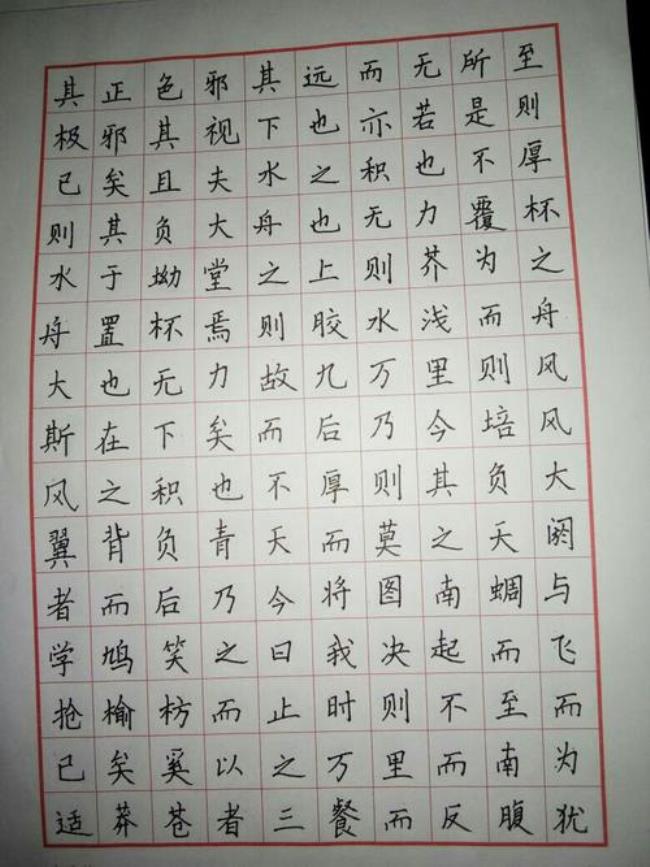 其正色邪其远而无所至
极邪其视下也亦若是则
已矣且夫水之积也不厚
则其负大舟也无力覆杯
水于坳堂之上则芥为之
舟置杯焉则胶水浅而舟
大也无力故九万里则风
斯在下矣而后乃今培风
风之积也不厚则其负大
翼背负青天而莫之夭阏
者而后乃今将图南蜩与
学鸠笑之曰我决起而飞
抢榆枋而止时则不至而
已矣奚以之万里而南为
适莽苍者三餐而反腹犹